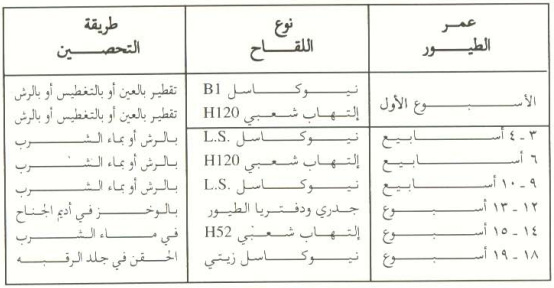 عمر الطيور	نوع اللقاح	طريقة التحصين
الأسبوع الأول	نيوكاسل B1	تقطير بالعين أو بالتغطيس أو بالرش
إلتهاب شعبي H120	تقطير بالعين أو بالتغطيس أو بالرش
٣ - ٤ أسابيع	نيوكاسل L.S.	بالرش أو بماء الشرب
٦ أسابيع	إلتهاب شعبي H120	بالرش أو بماء الشرب
٩ - ١٠ أسابيع	نيوكاسل L.S.	بالرش أو بماء الشرب
١٢ - ١٣ أسبوع	جدري ودفتريا الطيور	بالوخز في أديم الجناح
١٤ - ١٥ أسبوع	إلتهاب شعبي H52	في ماء الشرب
١٨ - ١٩ أسبوع	نيوكاسل زيتي	الحقن في جلد الرقبه